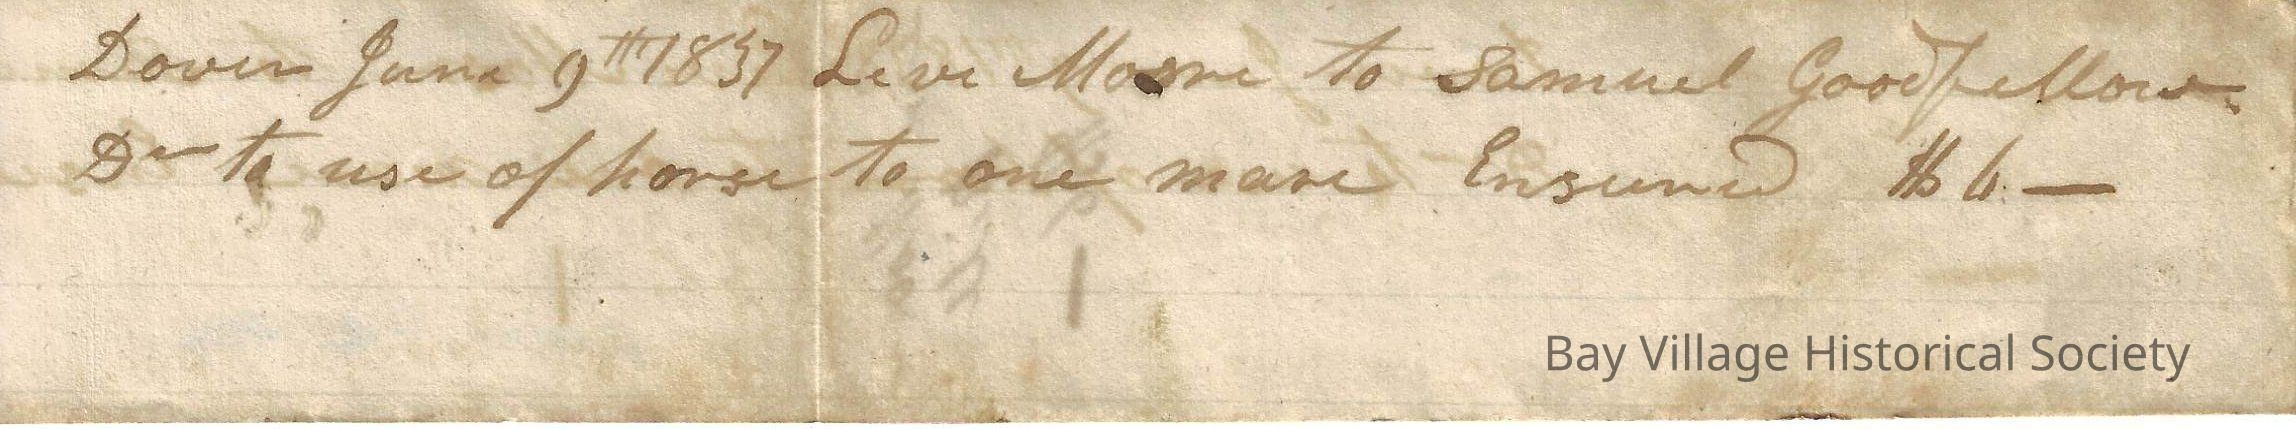 Dover June 9th 1837 Levi Moore to Samuel Goodfellow.
Dr to use of horse to one mare Ensured $6.—
Bay Village Historical Society